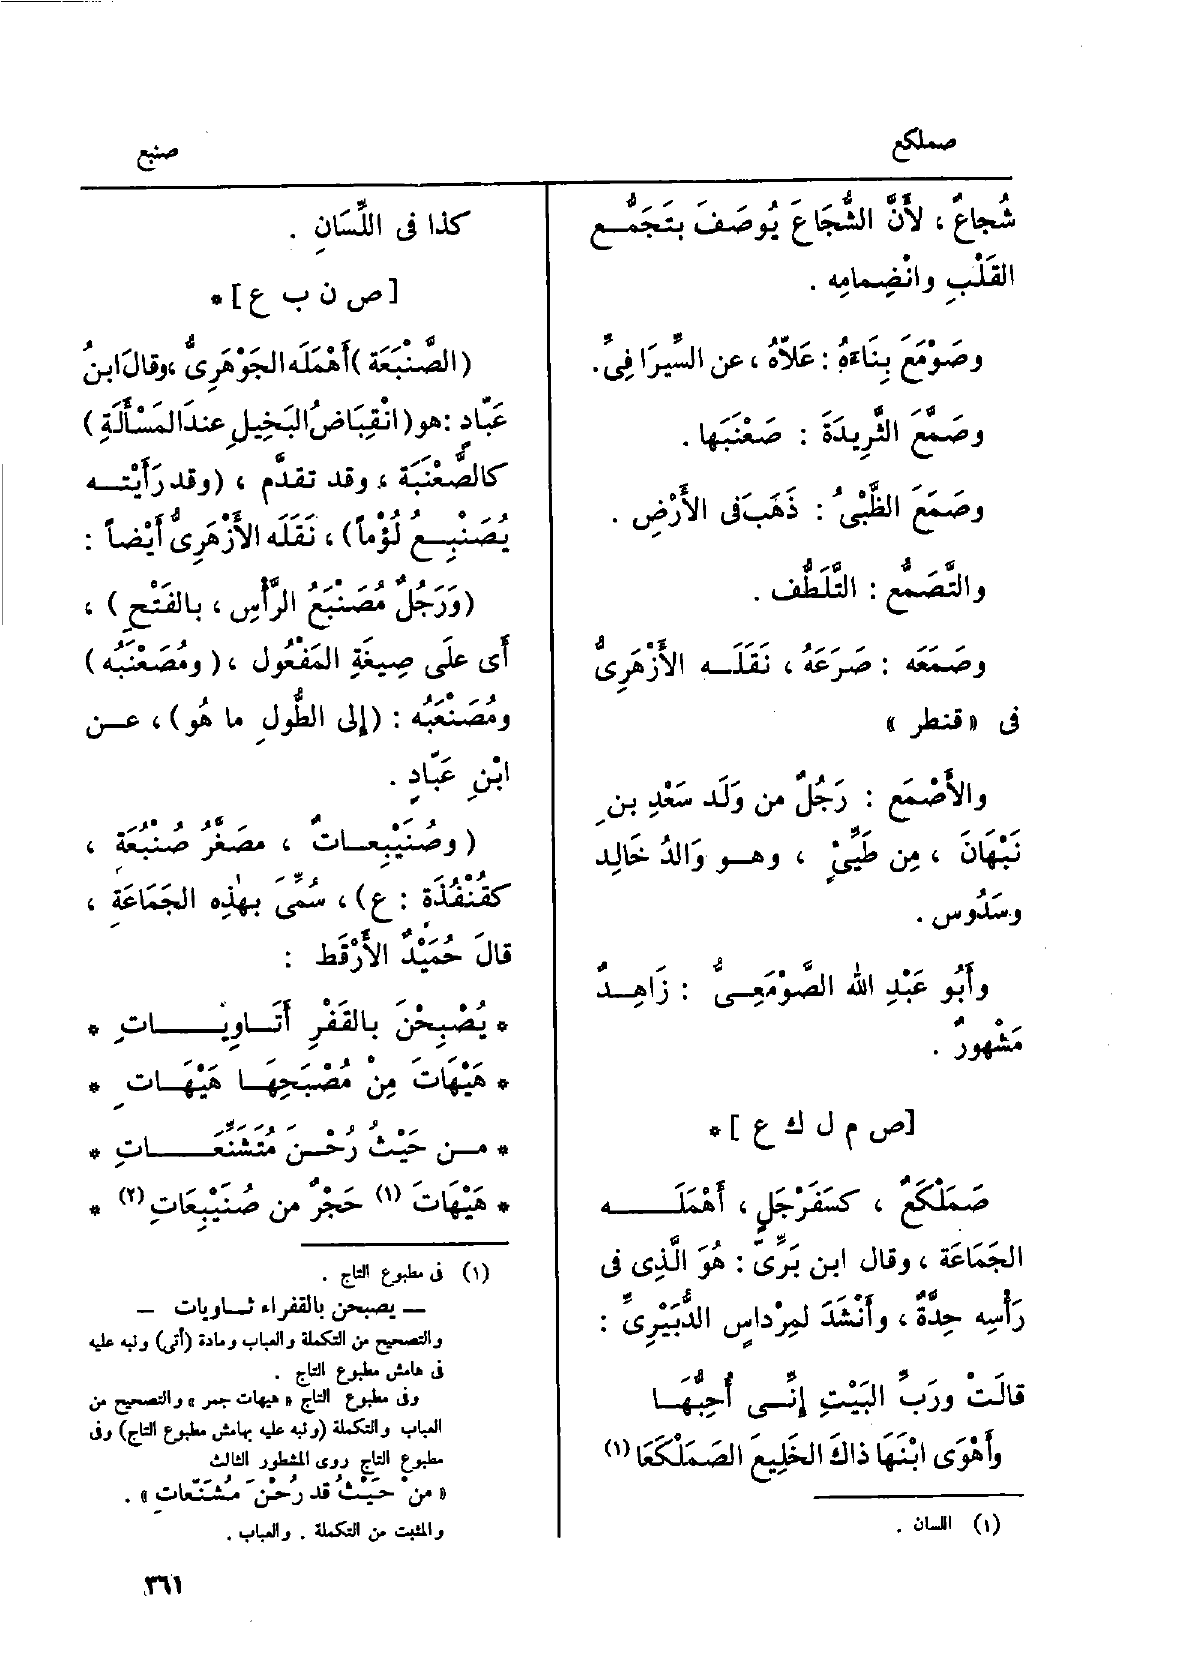 صملكع
صنبع
شُجاعٌ ، لأَنَّ الشُّجَاعَ يُوصَفَ بتَجَمُّعِ
القَلْبِ وانْضِمامِه .
وصَوْمَعَ بِنَاءَهُ : عَلاَّهُ ، عن السِّيرَافِىِّ.
وصَمَّعَ الثَّرِيدَةَ : صَعْنَبَها .
وصَمَعَ الظَّبْىُ : ذَهَبَ فى الأَرْضِ .
والتَّصَمُّع : التَّلَطُّف .
وصَمَعَه : صَرَعَهُ ، نَقَلَه الأَزْهَرِىُّ
فى « قنطر »
والأَصْمَع : رَجُلٌ من وَلَد سَعْدِ بنِ
نَبْهَانَ ، مِن طَيِّئٍ ، وهو وَالدُ خَالِد
وسَدُوس .
وأَبُو عَبْدِ الله الصَّوْمَعِىُّ : زَاهِدٌ
مَشْهورٌ .
[ص م ل ك ع ] *
صَمَلْكَعٌ ، كسَفَرْجَلٍ ، أَهْمَلَه
الجَمَاعَة ، وقال ابن بَرِّىّ : هُوَ الَّذِى فى
رَأْسِه حِدَّةٌ ، وأَنْشَدَ لمِرْداسٍ الدُّبَيْرِىِّ :
قالَتْ ورَبِّ البَيْتِ إِنِّى أُحِبُّهَا
وأَهْوَى ابْنَهَا ذاكَ الخَلِيعَ الصَمَلْكَعَا (١)
(١) اللسان .
كذا فى اللِّسَانِ .
[ص ن ب ع ] *
(الصَّنْبَعَة ) أَهْمَلَه الجَوْهَرِىُّ ، وقالَ ابنُ
عَبّادٍ : هو ( انْقِبَاضُ البَخِيلِ عندَ المَسْأَلَةِ )
كالصَّعْنَبَة ، وقد تقدَّم ، (وقد رَأَيْته
يُصَنْبِع لُؤْماً ) ، نَقَلَه الأَزْهَرِىُّ أَيْضاً :
(وَرَجُلٌ مُصَنْبَعُ الرَّأْسِ ، بالفَتْحِ ) ،
أَى على صِيغَةِ المَفْعُول ، ( ومُصَعْنَبُه )
ومُصَنْعَبُه : (إلى الطُّولِ ما هُو ) ، عن
ابْنِ عَبّادٍ .
( وصُنَيْبِعاتٌ ، مصَغَّرُ صُنْبُعَةٍ ،
كقُنْفُذَةٍ : ع) ، سُمِّىَ بهٰذِه الجَمَاعَةِ ،
قالَ حُمَيْدٌ الأَرْقَط :
* يُصْبِحْنَ بالقَفْرِ أَتَاوِيَاتِ *
* هَيْهَاتَ مِنْ مُصْبَحِهَا هَيْهَاتِ *
* من حَيْثُ رُحْنَ مُتَشَنِّعَاتِ *
* هَيْهَاتَ (١) حَجْرٌ من صُنَيْبِعَاتِ (٢) *
(١) فى مطبوع التاج .
— يصبحن بالقفراء ثاويات —
والتصحيح من التكملة والعباب ومادة (أتى) ونبه عليه
فى هامش مطبوع التاج .
وفى مطبوع التاج « هيهات جمر » والتصحيح من
العباب والتكملة (ونبه عليه بهامش مطبوع التاج) وفى
مطبوع التاج روى المشطور الثالث
« من حَيْثُ قد رُحْنَ مُشَنّعاتِ » .
والمثبت من التكملة . والعباب .
٣٦١